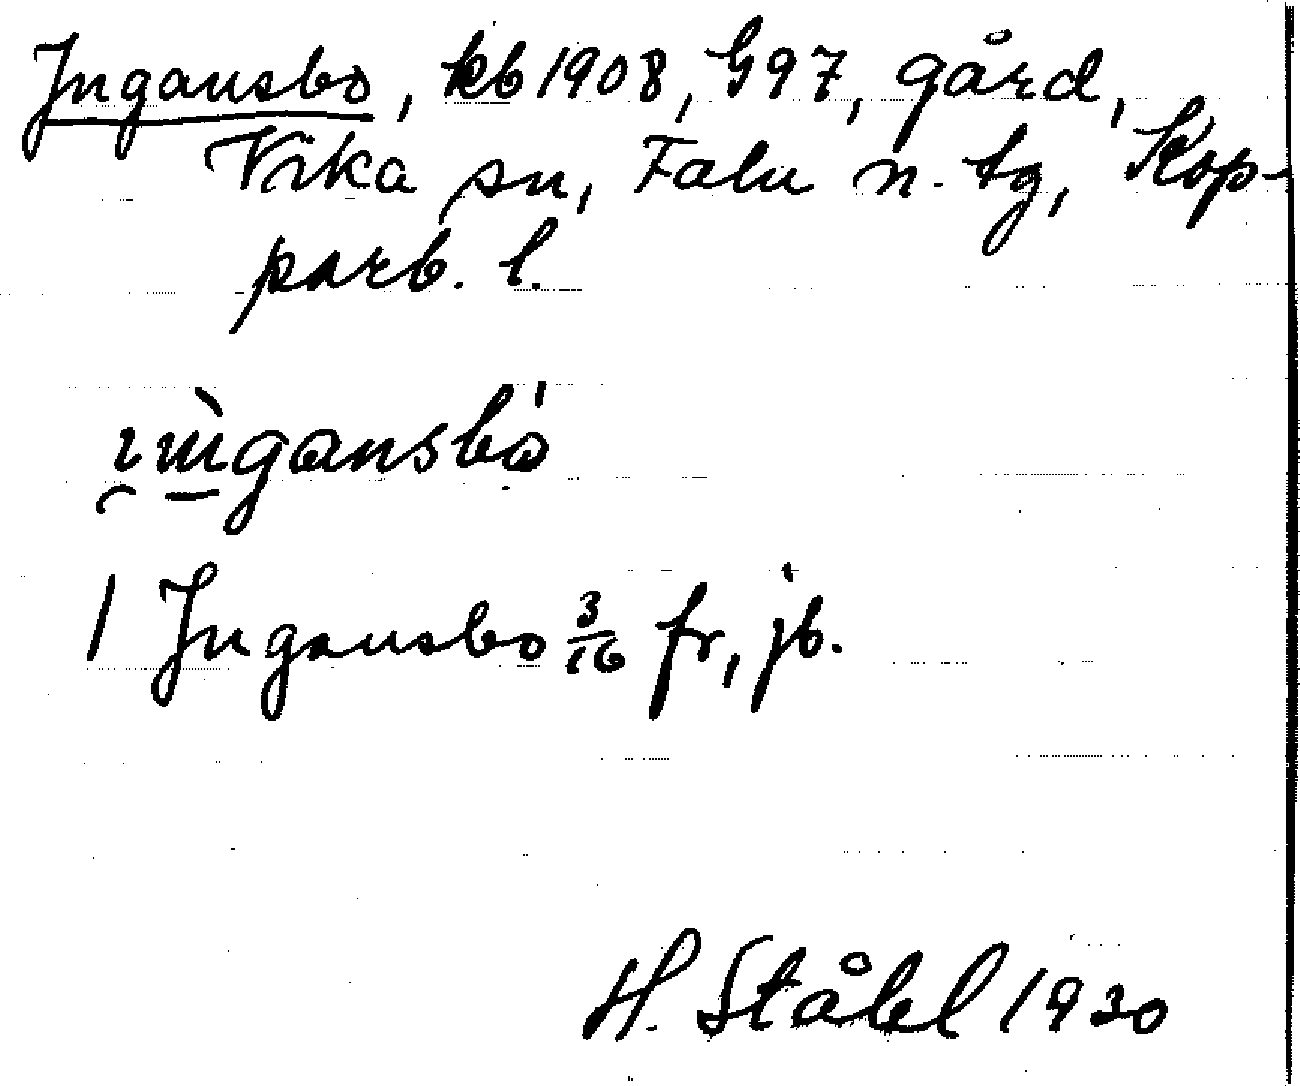 Ingansbo, kb 1908, G97, gård,
Vika sn, Falu n. tg, Kop-
parb. l.
ingansbo
1 Ingansbo 3/16 fr, jb.
H. Ståhl 1930